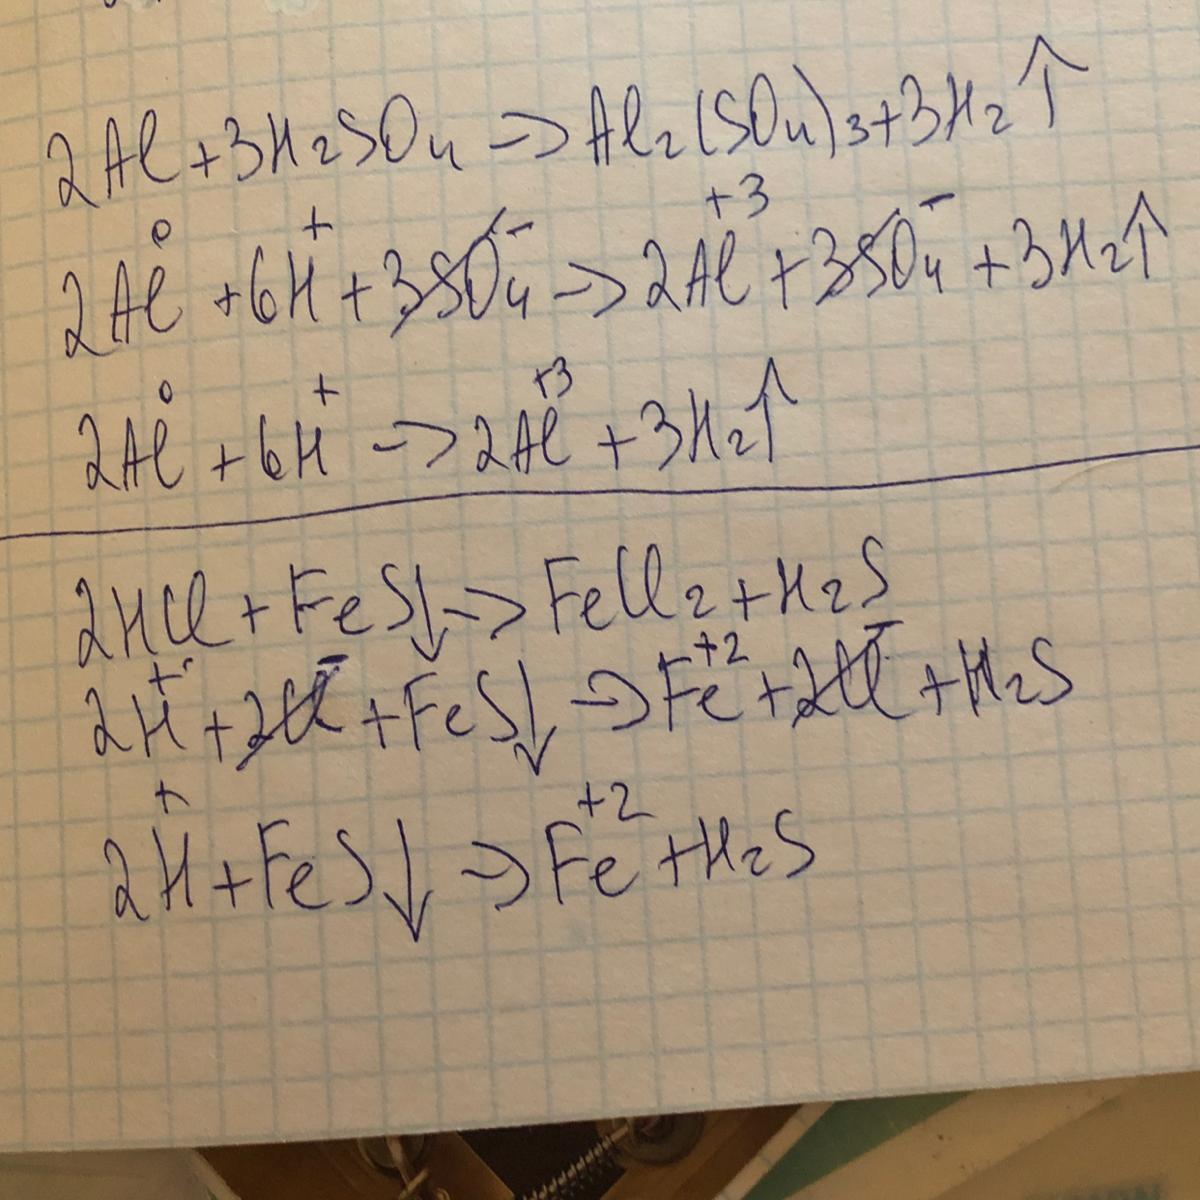 2Al + 3H₂SO₄ → Al₂(SO₄)₃ + 3H₂↑
2Al⁰ + 6H⁺ + 3SO₄⁻ → 2Al⁺³ + 3SO₄⁻ + 3H₂↑
2Al⁰ + 6H⁺ → 2Al⁺³ + 3H₂↑
2HCl + FeS↓ → FeCl₂ + H₂S
2H⁺ + 2Cl⁻ + FeS↓ → Fe⁺² + 2Cl⁻ + H₂S
2H⁺ + FeS↓ → Fe⁺² + H₂S